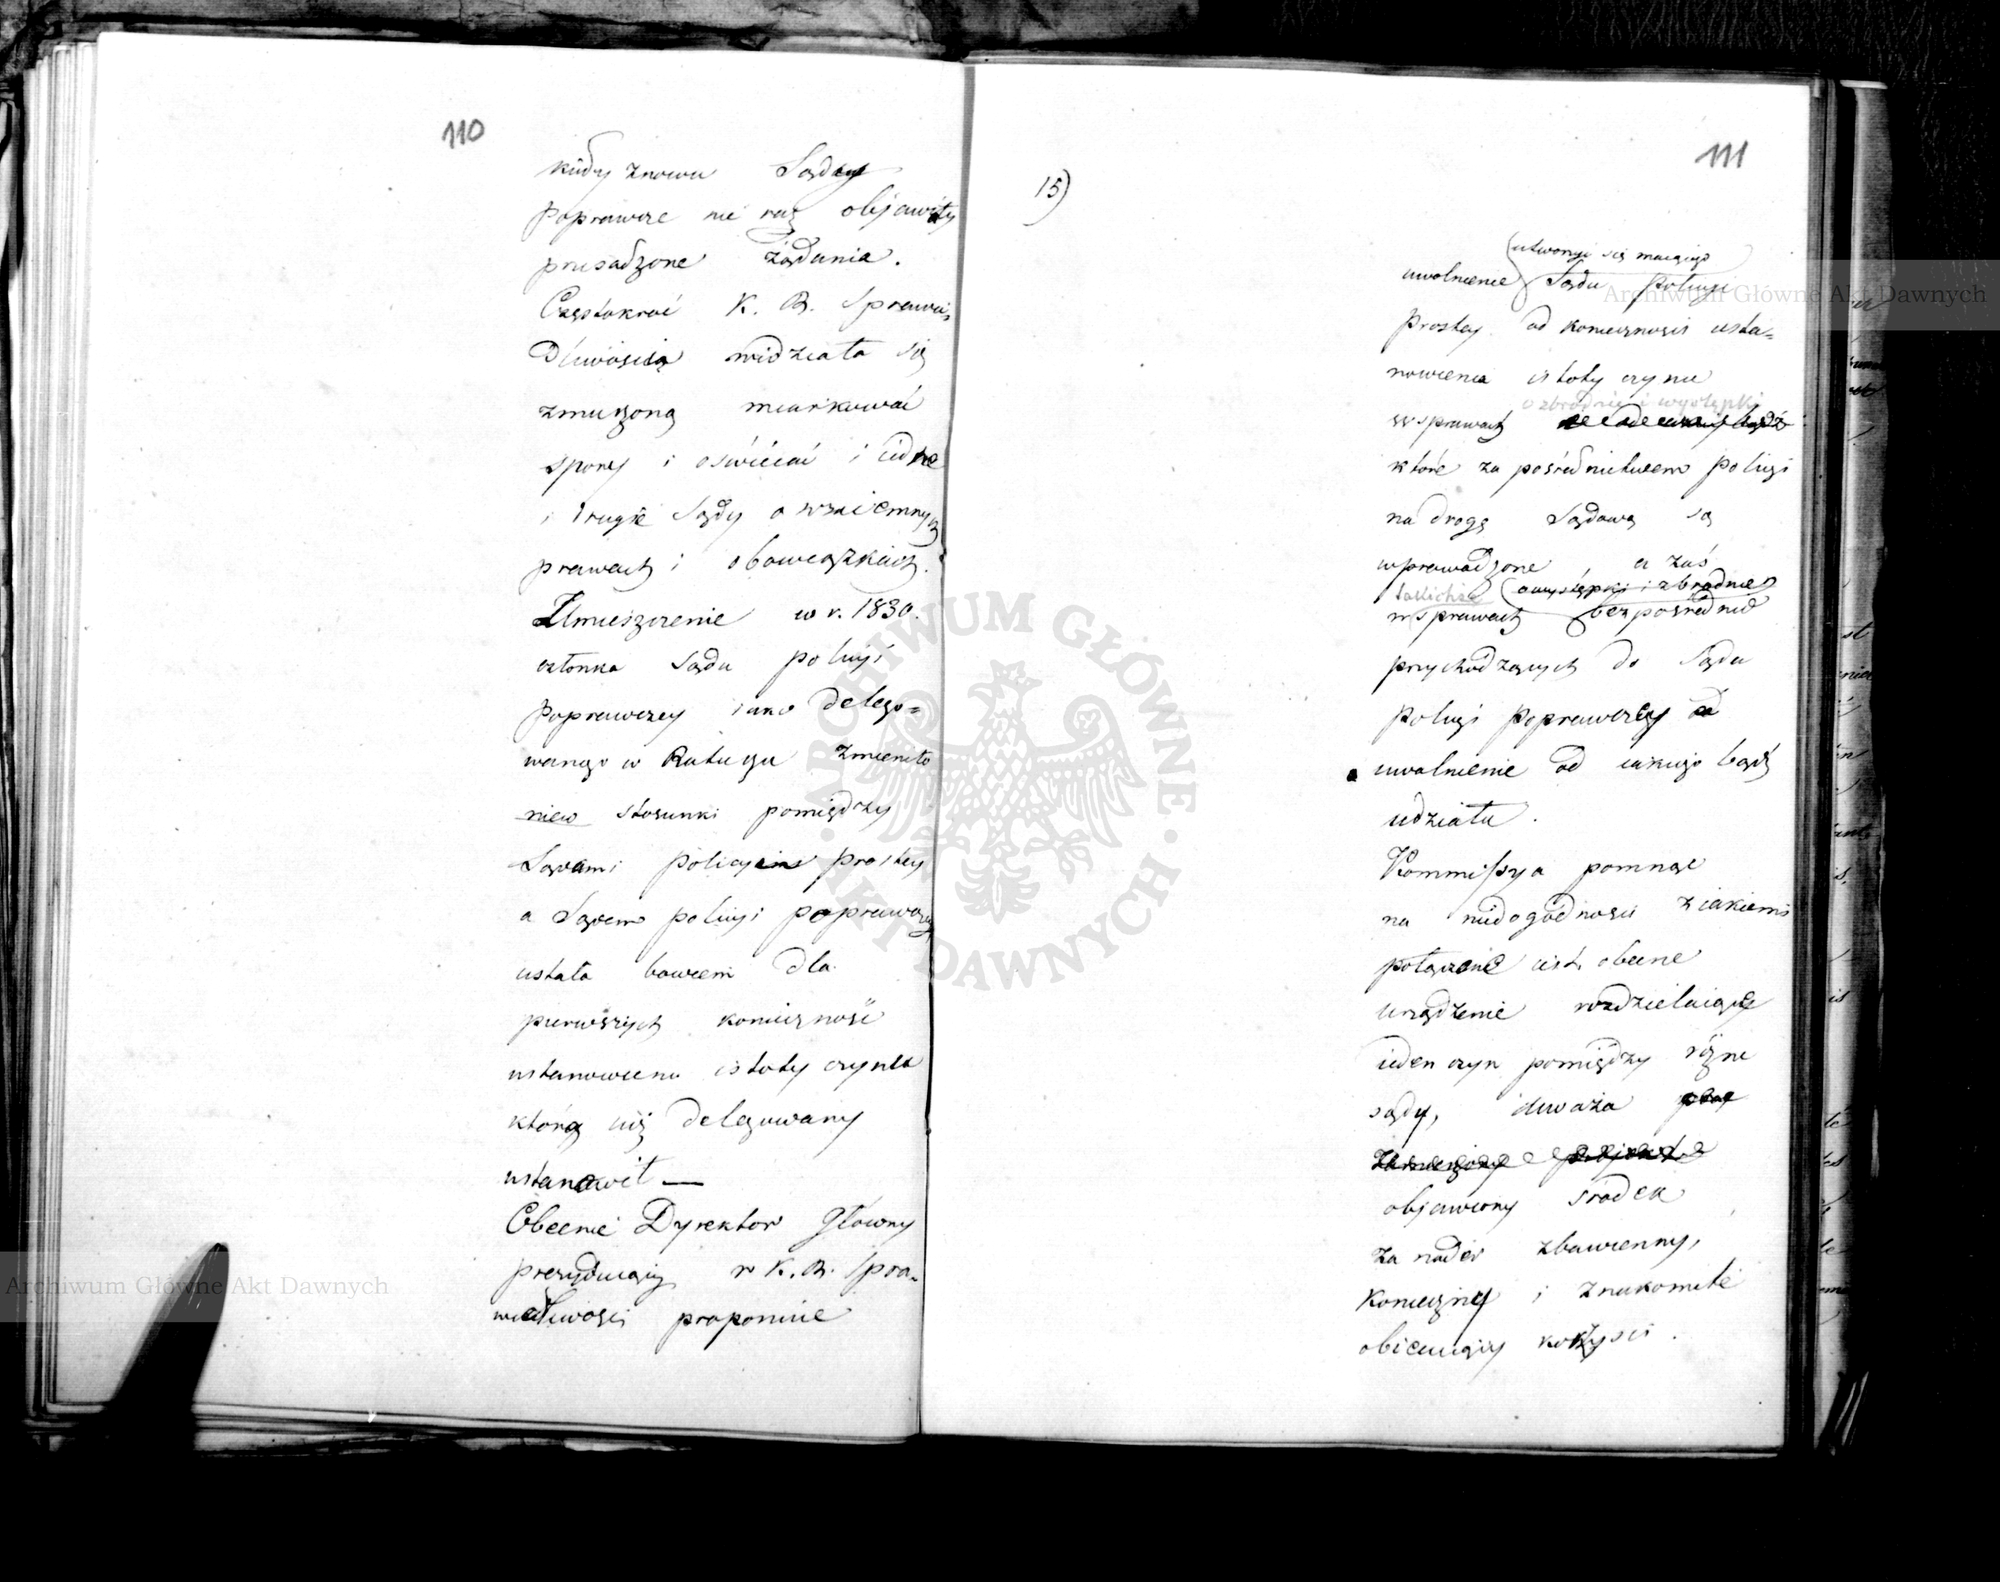 110
kiedy znowu Sądy
Poprawcze nie raz objawiały
przesadzone żądania.
Częstokroć K. R. Sprawie,
dliwości widziała się
zmuszoną miarkować
spory i oświecać i iedne
i drugie Sądy o wzaiemnych
prawach i obowiązkach.
Umieszczenie w r. 1830.
członka Sądu policyi
Poprawczey iako delego=
wanego w Ratuszu zmieniło
nieco stosunki pomiędzy
Sądami Policyi prostey
a Sądem policyi poprawczey
ustała bowiem dla
pierwszych konieczność
ustanowienia istoty czynu
którą iuż delegowany
ustanowił —
Obecnie Dyrektor Główny
prezyduiący w K. R. Spra-
wiedliwości proponuie
111
15)
utworzyć się maiącego
uwolnienie Sądu Policyi
Prostey od konieczności usta=
nowienia istoty czynu
o zbrodnie i występki
w sprawach
które za pośrednictwem Policyi
na drogę Sądową są
wprowadzone a zaś
takichże o występki i zbrodnie
w sprawach bezpośrednio
przychodzących do Sądu
Policyi Poprawczey
uwolnienie od iakiego bądź
udziału.
Kommissya pomnąc
na niedogodności z iakiemi
połączone iest obecne
urządzenie rozdzielaiące
ieden czyn pomiędzy różne
sądy, uważa
objawiony środek
za nader zbawienny,
konieczny i znakomite
obiecuiący korzyści.
Archiwum Główne Akt Dawnych
Archiwum Główne Akt Dawnych
ARCHIWUM GŁÓWNE · AKT DAWNYCH ·